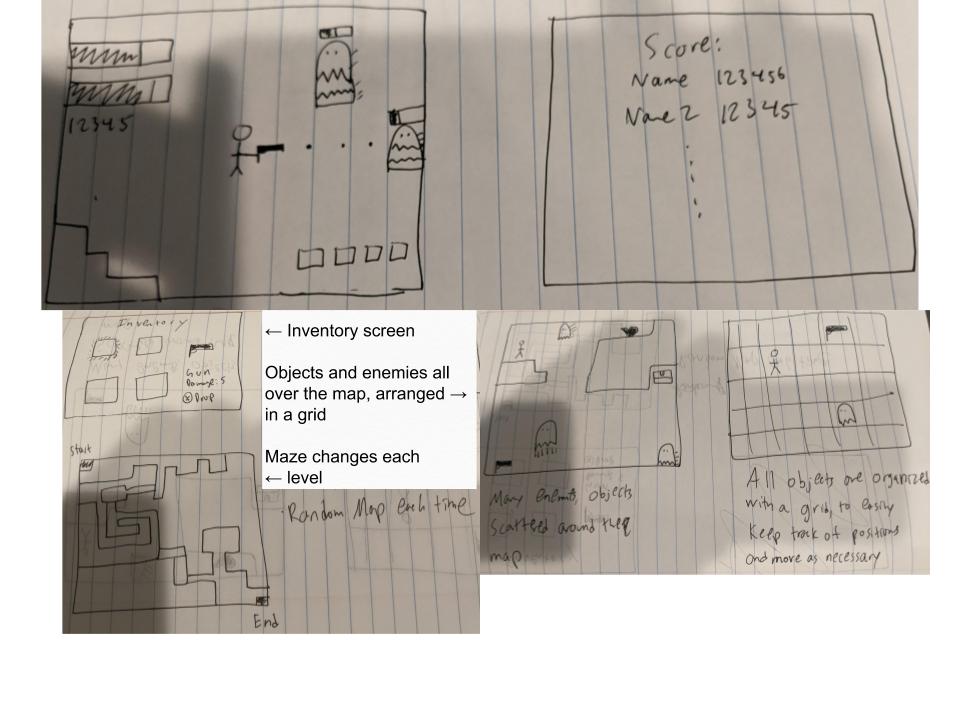 12345
Score:
Name 123456
Name 2 12345
Inventory
Gun
Damage: 5
Ⓧ Drop
← Inventory screen
Objects and enemies all
over the map, arranged →
in a grid
Maze changes each
← level
Start
Random Map each time
End
Many enemies, objects
Scattered around the
map
All objects are organized
with a grid, to easily
Keep track of positions
and move as necessary